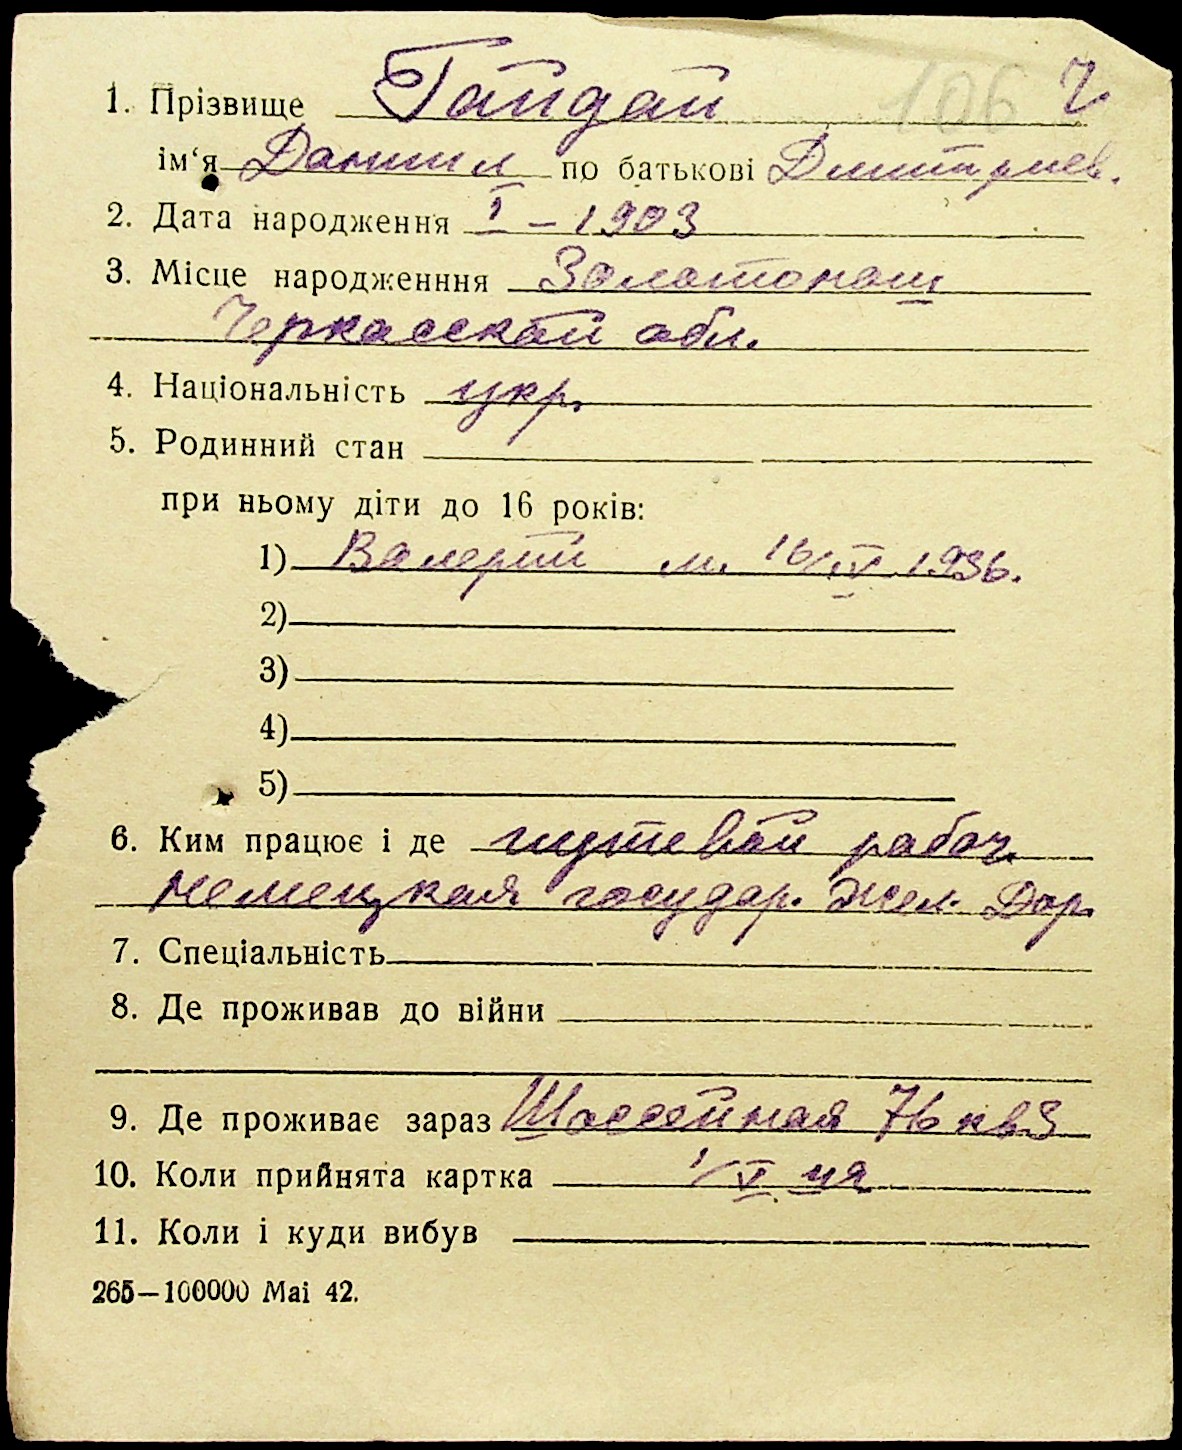 106 Ч
1. Прізвище Гайдай
ім'я Даниил по батькові Дмитриев.
2. Дата народження I – 1903
3. Місце народженння Золотонош
Черкасской обл.
4. Національність укр.
5. Родинний стан
при ньому діти до 16 років:
1) Валерий м. 16/IV 1936.
2)
3)
4)
5)
6. Ким працює і де путевой рабоч.
немецкая государ. жел. Дор.
7. Спеціальність
8. Де проживав до війни
9. Де проживає зараз Шоссейная 76 кв 3
10. Коли прийнята картка 1/V
11. Коли і куди вибув
265—100000 Маі 42.